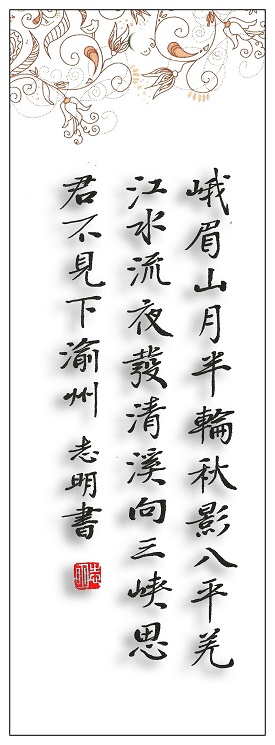 峨眉山月半輪秋影八平羌
江水流夜發清溪向三峽思
君不見下渝州 志明書
志明